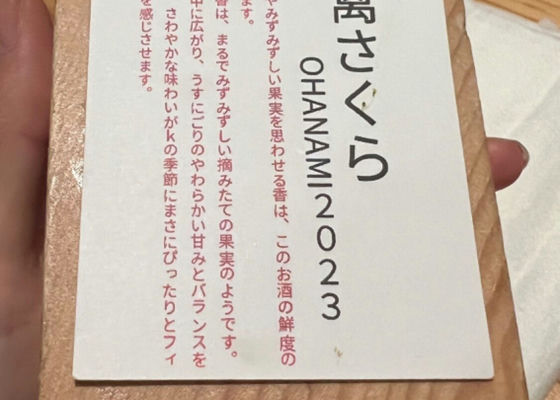 萬さくら
OHANAMI2023
やみずみずしい果実を思わせる香は、このお酒の鮮度の
ます。
香は、まるでみずみずしい摘みたての果実のようです。
中に広がり、うすにごりのやわらかい甘みとバランスを
さわやかな味わいがkの季節にまさにぴったりとフィ
を感じさせます。